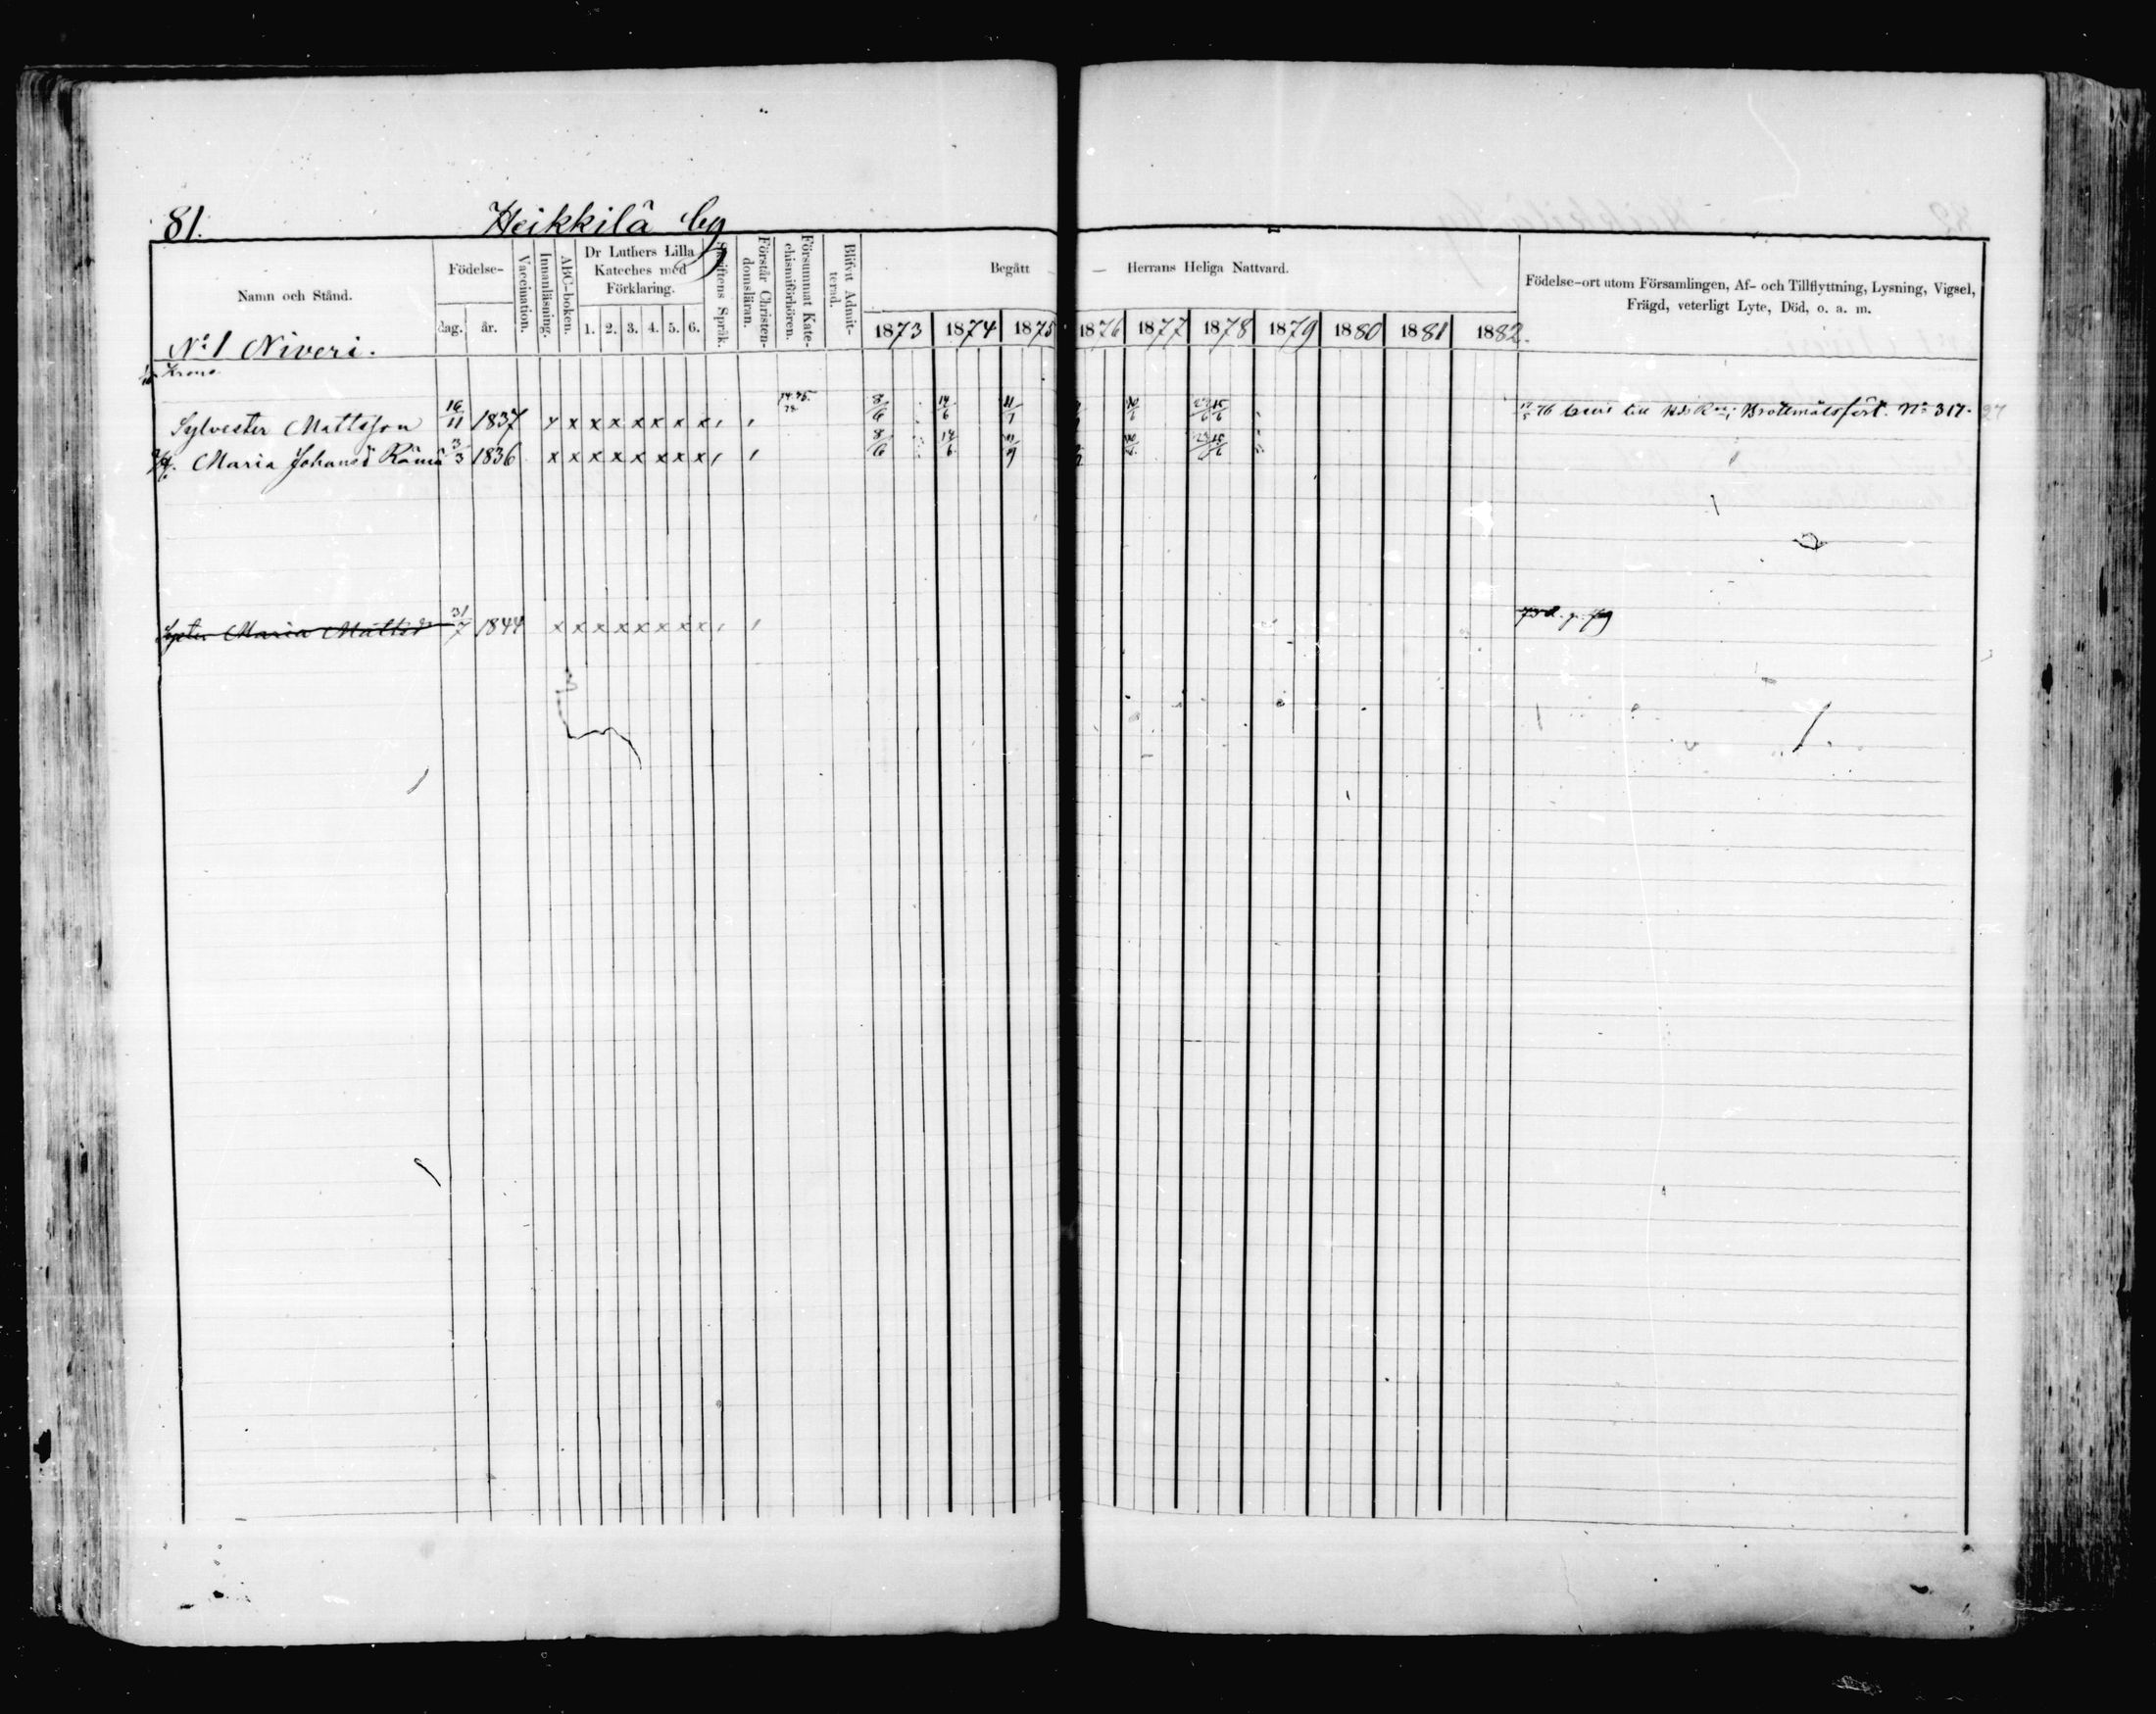 81. Heikkilä by
Namn och Stånd.
Födelse-
dag. år.
Vaccination.
Innanläsning.
ABC-boken.
Dr Luthers Lilla
Kateches med
Förklaring.
1. 2. 3. 4. 5. 6.
Skriftens Språk.
Förstår Christen-
domsläran.
Försummat Kate-
chismiförhören.
Blifvit Admit-
terad.
Begått — Herrans Heliga Nattvard.
1873 1874 1875 1876 1877 1878 1879 1880 1881 1882.
Födelse-ort utom Församlingen, Af- och Tillflyttning, Lysning, Vigsel,
Frägd, veterligt Lyte, Död, o. a. m.
No 1 Niveri.
Krono
Sylvester Mattsson 16/11 1837 x x x x x x x x x 8/6 14/6 11/7 No 317.
Maria Johansd 3/3 1836 x x x x x x x x 8/6 14/6 11/7
Syster Maria Mattsd 31/7 1844 x x x x x x x x